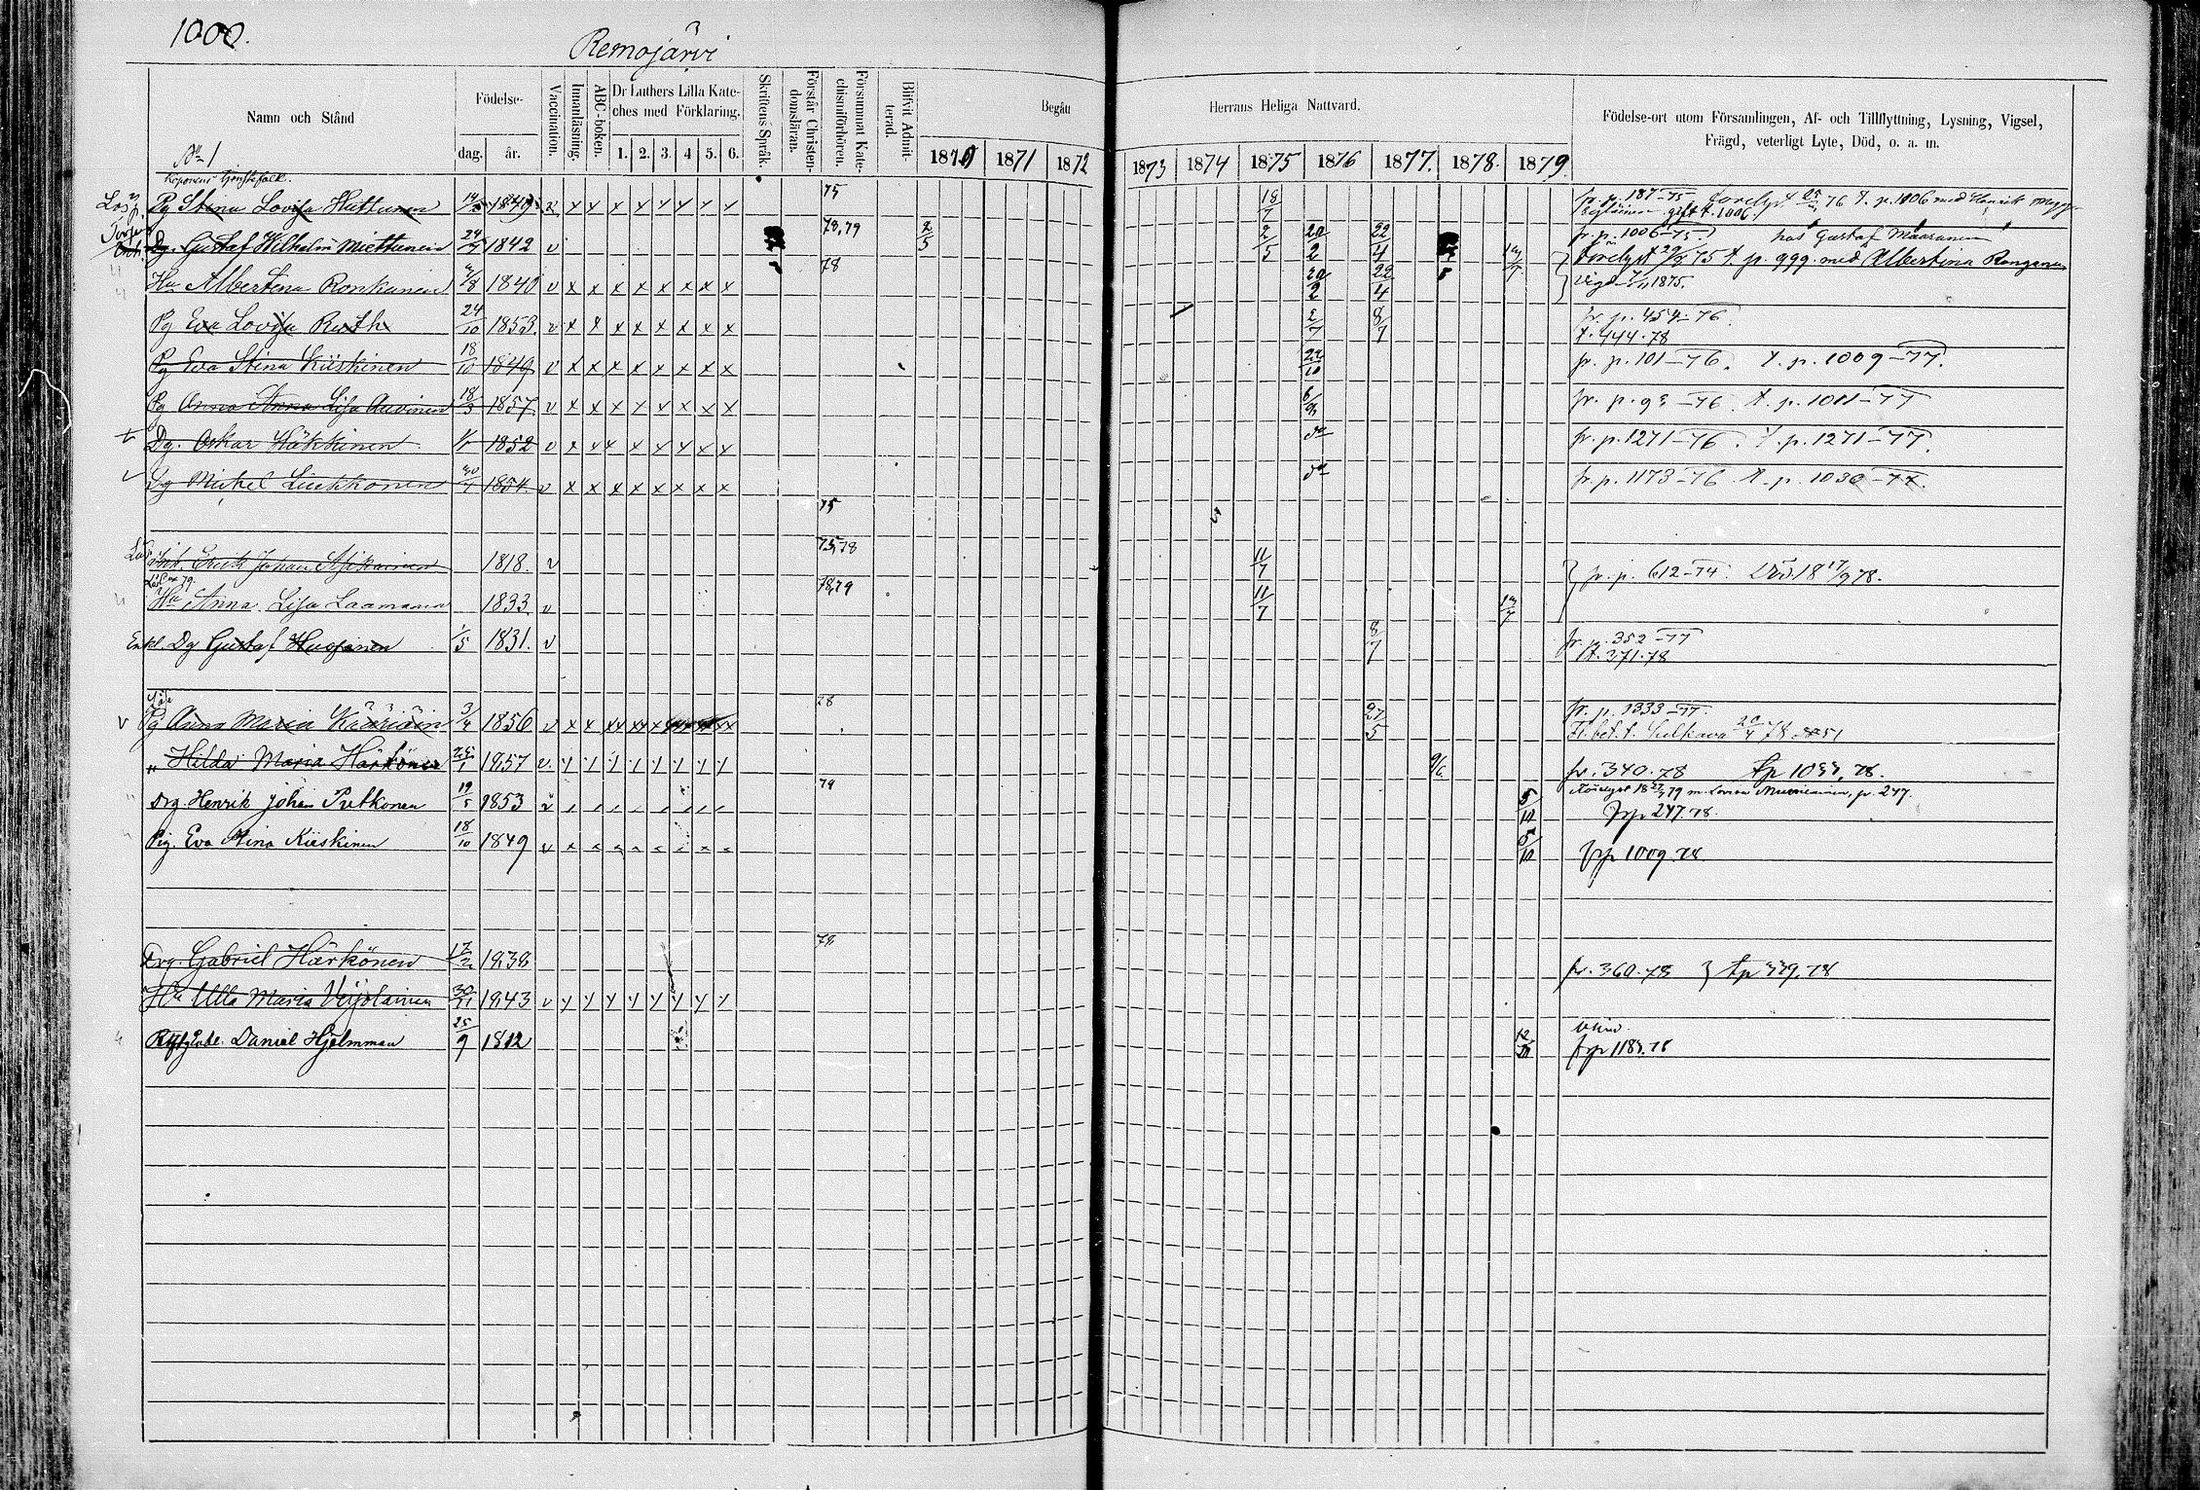 1000.
Remojärvi
Namn och Stånd
Födelse-
dag. år.
Vaccination.
Innanläsning.
ABC-boken.
Dr Luthers Lilla Kate-
ches med Förklaring.
1. 2. 3. 4 5. 6.
Skriftens Språk.
Förstår Christen-
domsläran.
Försummat Kate-
chismiförhören.
Blifvit Admit-
terad.
Begått
1870 1871 1872
Herrans Heliga Nattvard.
1873 1874 1875 1876 1877. 1878. 1879.
Födelse-ort utom Församlingen, Af- och Tillflyttning, Lysning, Vigsel,
Frägd, veterligt Lyte, Död, o. a. m.
No 1
Koponens tjenstefolk.
Pg Stina Lovisa Huttunen 1849 v x x x x x x x x 75 18/7 t. p. 1006 med Henrik
gift t. 1006.
Dg. Gustaf Wilhelm Miettunen 24/4 1842 v 78,79 2/5 2/5 20/2 22/4 fr. p. 1006-75 hos Gustaf Maaranen
75 t. p. 999 med Albertina Ronganen
Hu Albertina Ronkanen 1840 v x x x x x x x x 78 20/2 22/4 vigd 1875.
Pg Eva Lovisa Ruth 24/10 1853. v x x x x x x x x 2/7 8/7 fr. p. 454-76.
t. 444.78
Pg Eva Stina Kiiskinen 18/10 1849 v x x x x x x x x 22/10 fr. p. 101-76. t. p. 1009-77.
Pg Anna Lisa Auvinen 18/3 1857. v x x x x x x x x fr. p. 93-76. t. p. 1011-77
Dg. Oskar Häkkinen 1/1 1852 v x x x x x x x x do fr. p. 1271-76. t. p. 1271-77.
Dg Mickel Liukkonen 1854. v x x x x x x x x do fr. p. 1173-76. t. p. 1030-77.
75
Erik Johan Asikainen 1818. v 75,78 11/7 fr. p. 612-74. Död 18 17/9 78.
Hu Anna Lisa Laamanen 1833. v 78,79 11/7
Enkl. Dg Gustaf Husojanen 1/5 1831. v 8/7 fr. p. 352-77
t. 371.78
Pg Anna Maria Kääriäin 3/4 1856 v x x 78 27/5 fr. p. 1333-77.
Fl. bet. t. Sulkava 20/4 78. 51
" Hilda Maria Härkönen 25/1 1857 v. 9/6. fr. 340.78 tp 1033, 78.
Drg. Henrik Johan Putkonen 19/5 1853 79 5/10 79 m. Lovisa p. 247.
frp 247.78.
Pig. Eva Stina Kiiskinen 18/10 1849 v 5/10 frp 1009.78
Drg. Gabriel Härkönen 17/2 1838 78 fr. 360.78 } tp 339.78
Hu Ulla Maria Veijolainen 30/11 1843 v
Daniel Hjelmman 25/9 1812 frp 1183.78